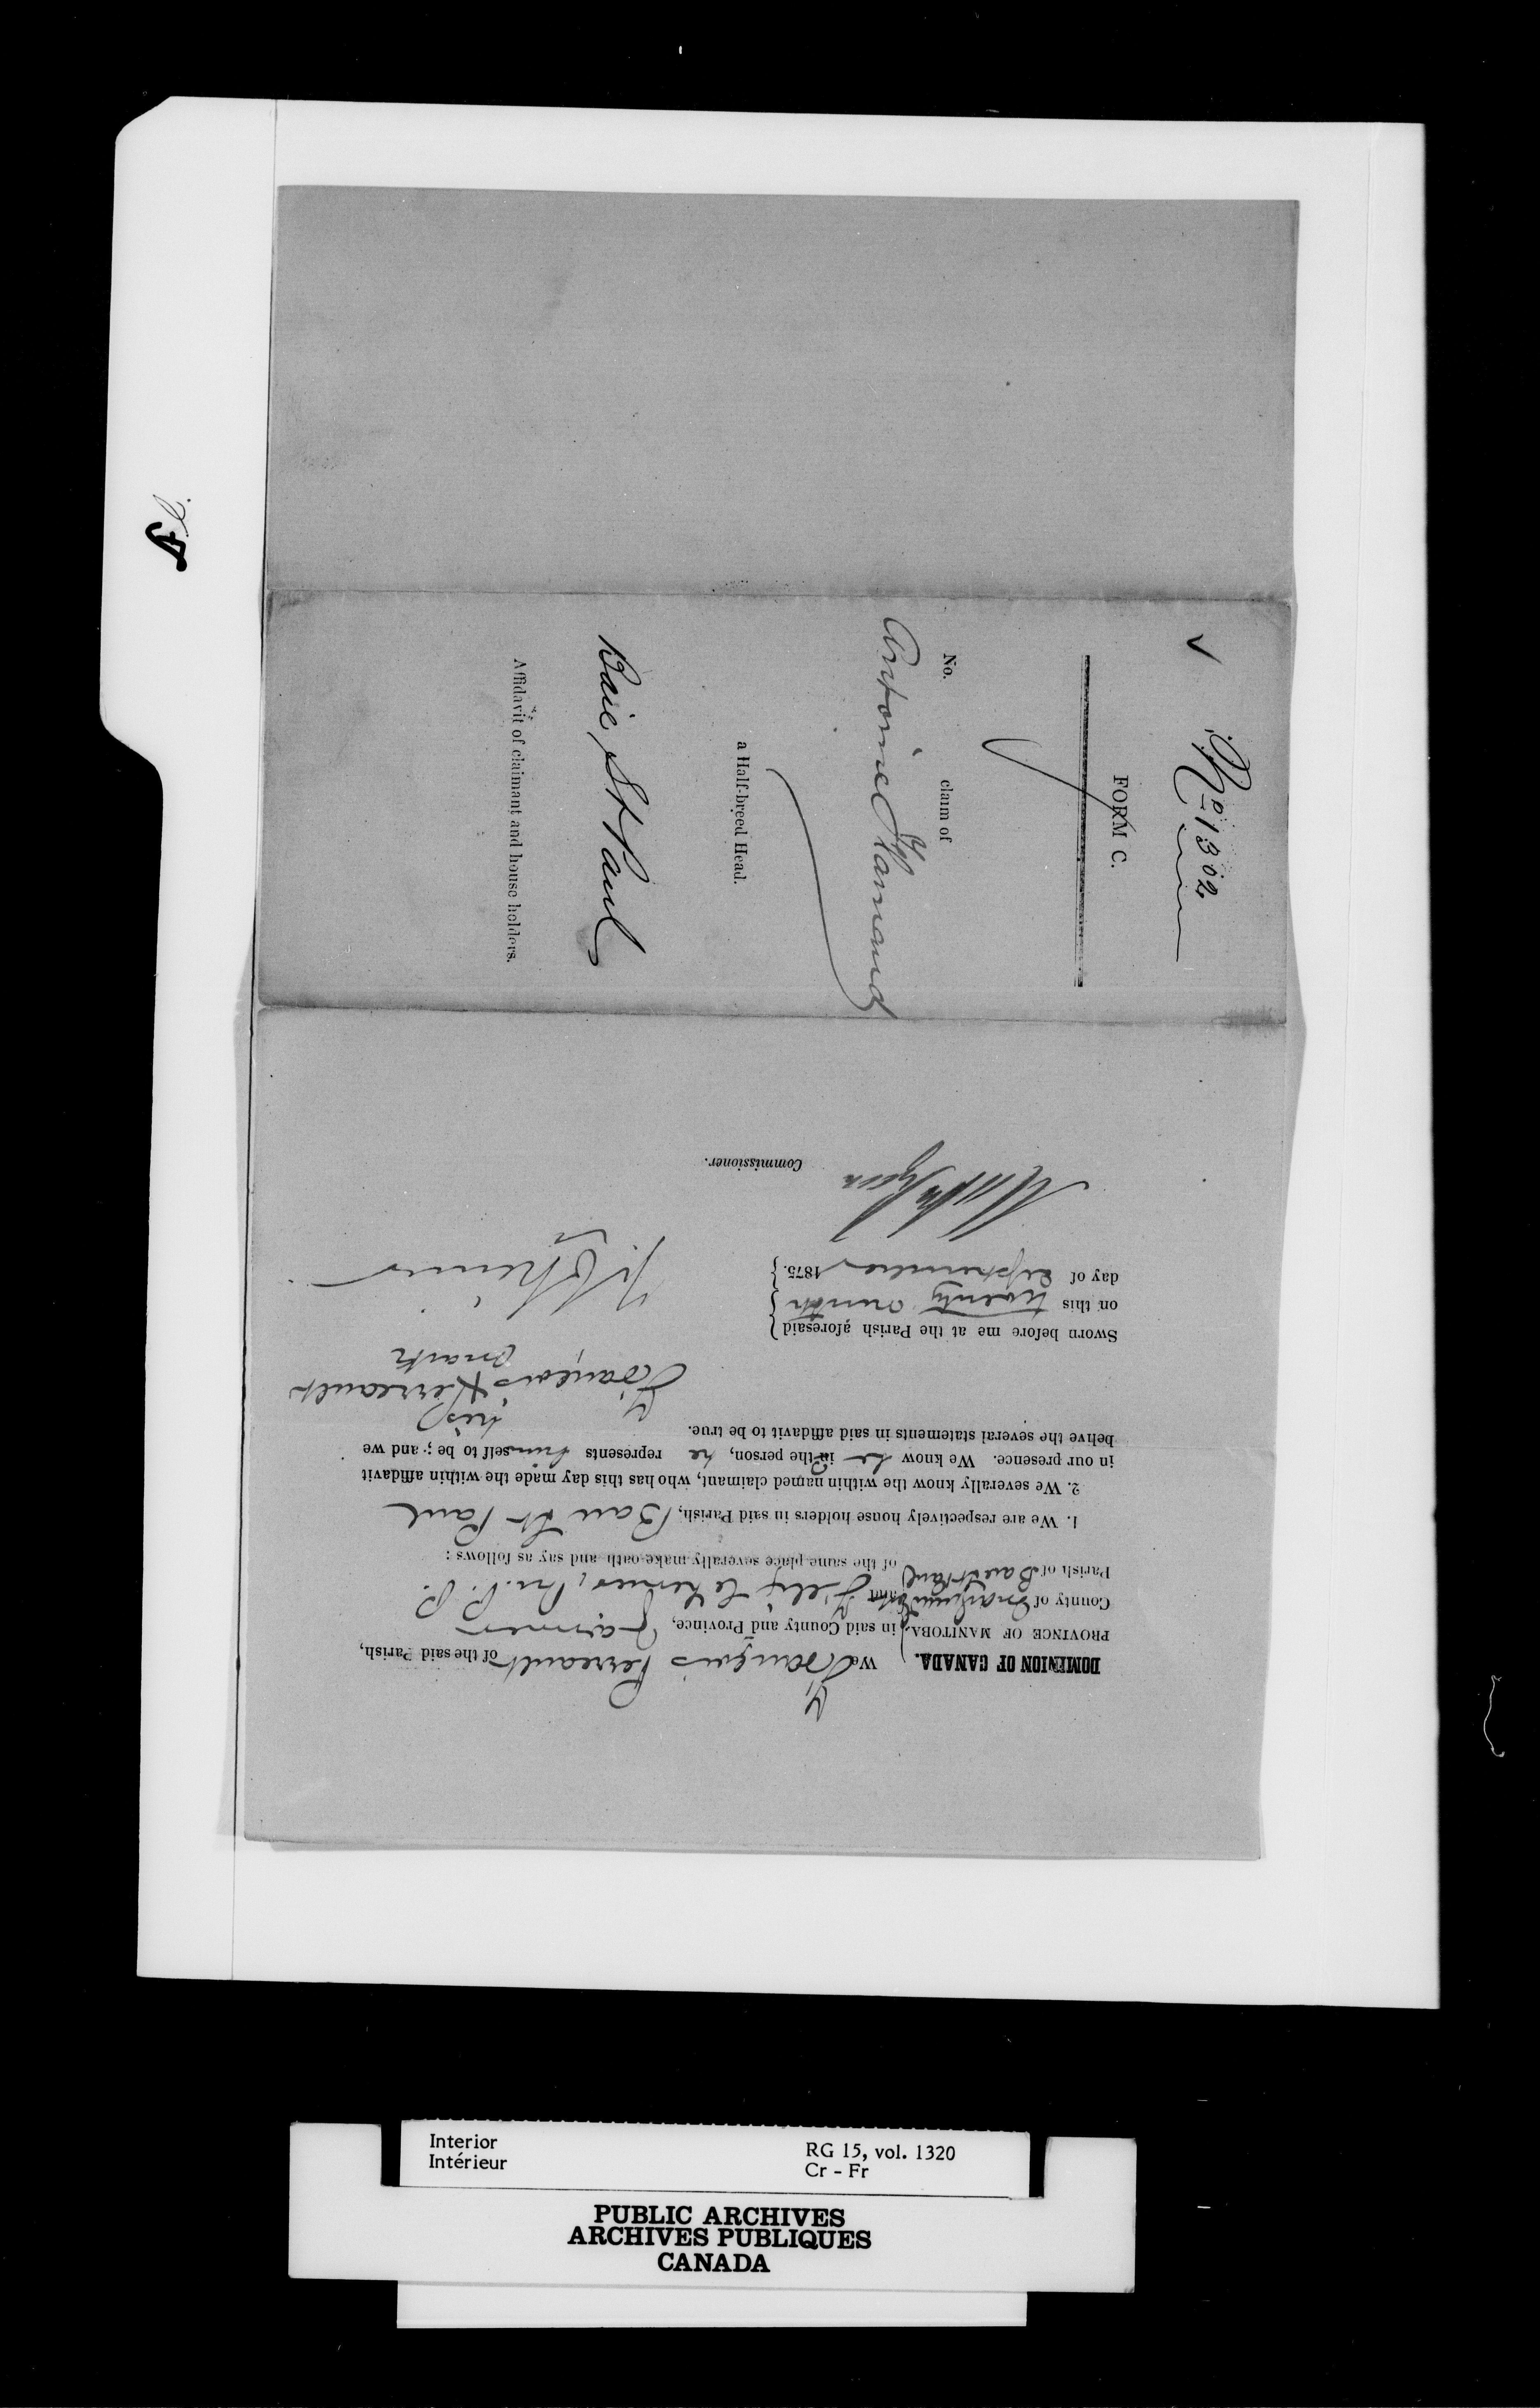 No 1302
FORM C.
No. claim of
Antoine Hamand
a Half-breed Head.
Baie St Paul
Affidavit of claimant and house holders.
DOMINION OF CANADA.
PROVINCE OF MANITOBA,
County of Marquette
Parish of Baie St Paul
We François Perreault of the said Parish,
in said County and Province, Farmer
and Felix Chenier, M. P. P.
of the same place severally make oath and say as follows:
1. We are respectively house holders in said Parish, Baie St Paul
2. We severally know the within named claimant, who has this day made the within affidavit
in our presence. We know he is the person, he represents himself to be; and we
belive the several statements in said affidavit to be true.
his
François Perreault
mark
Sworn before me at the Parish aforesaid
on this twenty ninth
day of September 1875.
F. Chenier
Commissioner.
Interior
Intérieur
RG 15, vol. 1320
Cr - Fr
PUBLIC ARCHIVES
ARCHIVES PUBLIQUES
CANADA